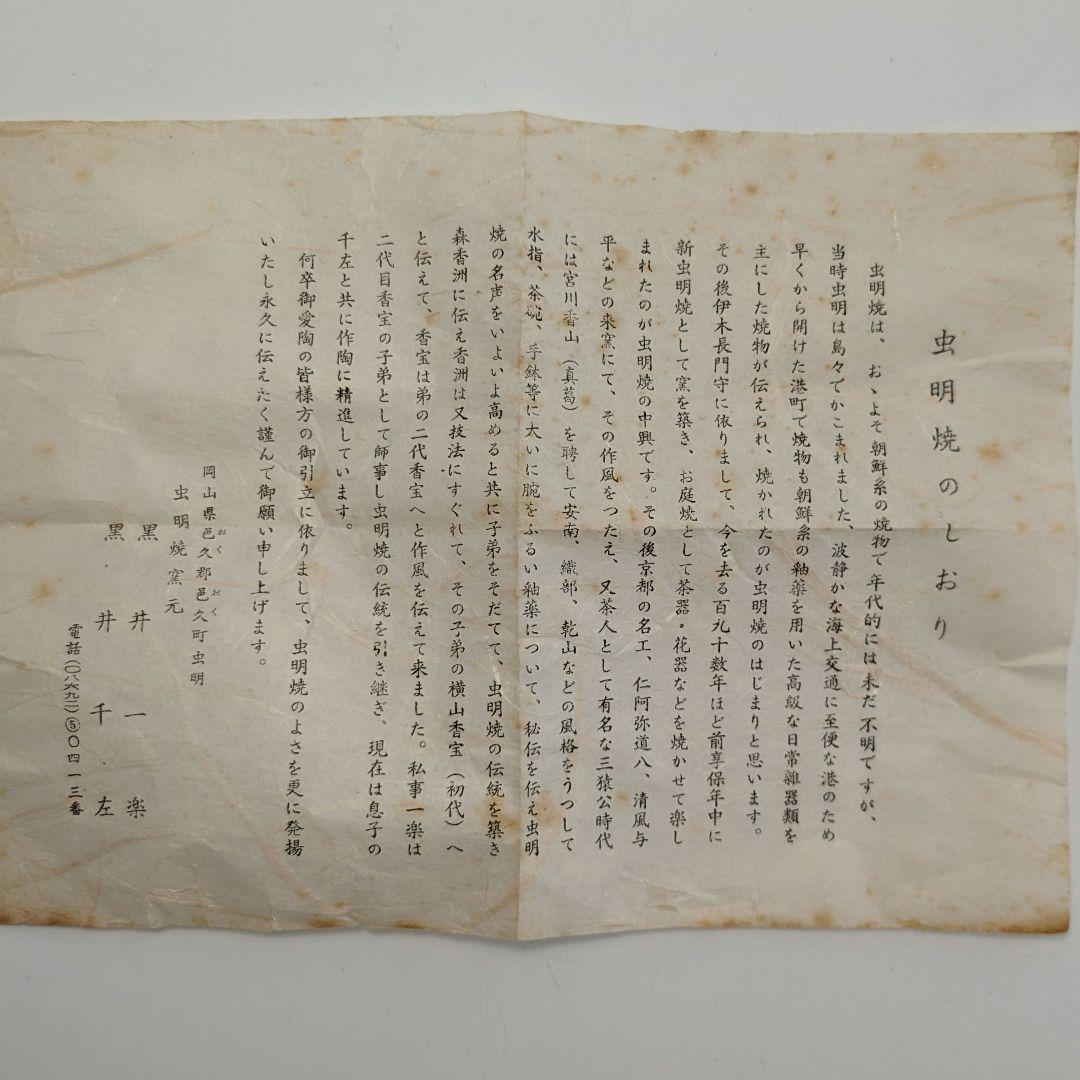 虫明焼のしおり
虫明焼は、おゝよそ朝鮮系の焼物で年代的には未だ不明ですが、
当時虫明は島々でかこまれました、波静かな海上交通に至便な港のため
早くから開けた港町で焼物も朝鮮系の釉薬を用いた高級な日常雑器類を
主にした焼物が伝えられ、焼かれたのが虫明焼のはじまりと思います。
その後伊木長門守に依りまして、今を去る百九十数年ほど前享保年中に
新虫明焼として窯を築き、お庭焼として茶器・花器などを焼かせて楽し
まれたのが虫明焼の中興です。その後京都の名工、仁阿弥道八、清風与
平などの来窯にて、その作風をつたえ、又茶人として有名な三猿公時代
には宮川香山（真葛）を聘して安南、織部、乾山などの風格をうつして
水指、茶碗、手鉢等に大いに腕をふるい釉薬について、秘伝を伝え虫明
焼の名声をいよいよ高めると共に子弟をそだてて、虫明焼の伝統を築き
森香洲に伝え香洲は又技法にすぐれて、その子弟の横山香宝（初代）へ
と伝えて、香宝は弟の二代香宝へと作風を伝えて来ました。私事一楽は
二代目香宝の子弟として師事し虫明焼の伝統を引き継ぎ、現在は息子の
千左と共に作陶に精進しています。
何卒御愛陶の皆様方の御引立に依りまして、虫明焼のよさを更に発揚
いたし永久に伝えたく謹んで御願い申し上げます。
岡山県邑久郡邑久町虫明
おく おく
虫明焼窯元
黒井一楽
黒井千左
電話（〇八六九二）⑤〇四一三番